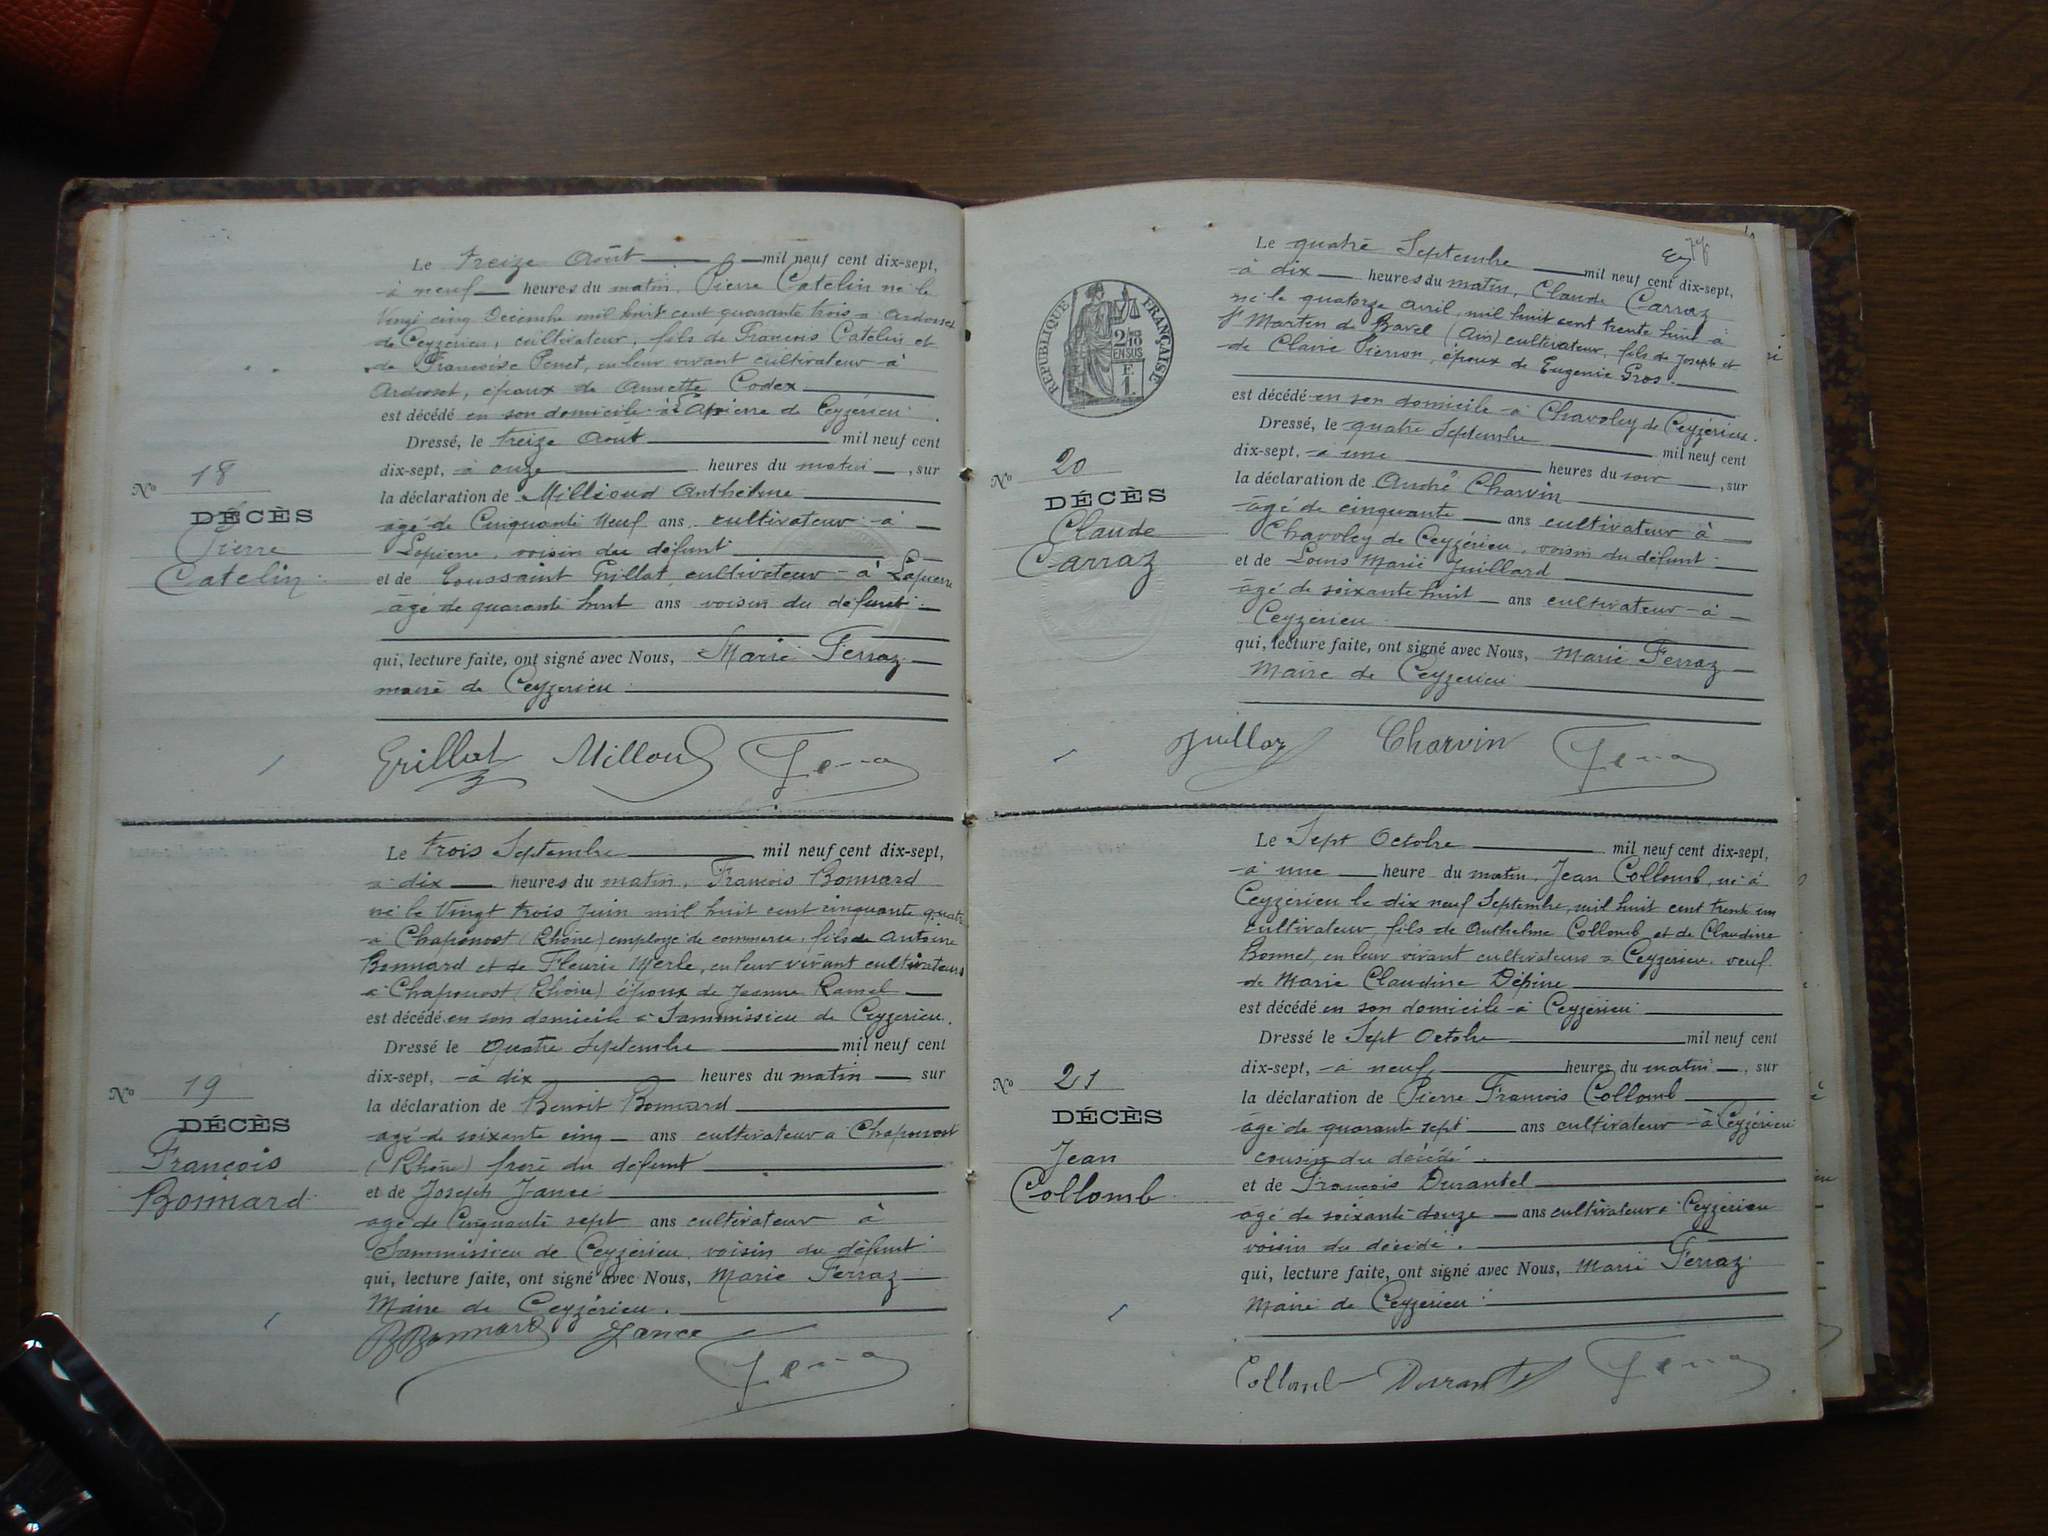 Le treize Août mil neuf cent dix-sept,
à neuf heures du matin, Pierre Catelin né le
Vingt cinq Décembre mil huit cent quarante trois à Ardosset
de Ceyzérieu, cultivateur, fils de François Catelin et
de Françoise Penet, en leur vivant cultivateur à
Ardosset, époux de Annette Codex
est décédé en son domicile à Lapierre de Ceyzérieu.
Dressé, le treize Août mil neuf cent
dix-sept, à onze heures du matin, sur
la déclaration de Millioud Anthelme
âgé de Cinquante Neuf ans cultivateur à
Lapierre, voisin du défunt
et de Toussaint Grillat, cultivateur à Lapierre
âgé de quarante huit ans voisin du défunt.
qui, lecture faite, ont signé avec Nous, Marie Ferraz
maire de Ceyzerieu.
No 18
DÉCÈS
Pierre
Catelin.
Grillat Milloud
Le trois Septembre mil neuf cent dix-sept,
à dix heures du matin, François Bonnard
né le Vingt trois Juin mil huit cent cinquante quatre
à Chaponost (Rhône) employé de commerce, fils de Antoine
Bonnard et de Fleurie Merle, en leur vivant cultivateurs
à Chaponost (Rhône) époux de Jeanne Ramel
est décédé en son domicile à Sammissieu de Ceyzerieu.
Dressé le Quatre Septembre mil neuf cent
dix-sept, à dix heures du matin sur
la déclaration de Benoit Bonnard
âgé de soixante cinq ans cultivateur à Chaponost
(Rhône) frère du défunt
et de Joseph Jance
âgé de Cinquante sept ans cultivateur à
Sammissieu de Ceyzérieu voisin du défunt
qui, lecture faite, ont signé avec Nous, Marie Ferraz
Maire de Ceyzérieu.
No 19
DÉCÈS
François
Bonnard.
B Bonnard Jance
Le quatre Septembre mil neuf cent dix-sept,
à dix heures du matin, Claude Carraz
né le quatorze avril, mil huit cent trente huit à
St Martin de Bavel (Ain) cultivateur, fils de Joseph et
de Claire Pierron, époux de Eugenie Gros.
est décédé en son domicile à Chavoley de Ceyzérieu.
Dressé, le quatre Septembre mil neuf cent
dix-sept, à une heures du soir, sur
la déclaration de André Charvin
âgé de cinquante ans cultivateur à
Chavoley de Ceyzérieu, voisin du défunt.
et de Louis Marie Juillard
âgé de soixante huit ans cultivateur à
Ceyzérieu.
qui, lecture faite, ont signé avec Nous, Marie Ferraz
Maire de Ceyzerieu
RÉPUBLIQUE FRANÇAISE
2/10
EN SUS
F.
1.
No 20
DÉCÈS
Claude
Carraz
Charvin
Le Sept Octobre mil neuf cent dix-sept,
à une heure du matin, Jean Collomb, né à
Ceyzérieu le dix neuf Septembre, mil huit cent trente un
cultivateur, fils de Anthelme Collomb et de Claudine
Bonnet, en leur vivant cultivateurs à Ceyzerieu, veuf
de Marie Claudine Dépine
est décédé en son domicile à Ceyzérieu
Dressé le Sept Octobre mil neuf cent
dix-sept, à neuf heures du matin, sur
la déclaration de Pierre François Collomb
âgé de quarante sept ans cultivateur à Ceyzérieu
cousin du décédé.
et de François Durantel
âgé de soixante douze ans cultivateur à Ceyzérieu
voisin du décédé.
qui, lecture faite, ont signé avec Nous, Marie Ferraz
Maire de Ceyzerieu
No 21
DÉCÈS
Jean
Collomb
Collomb Durantel